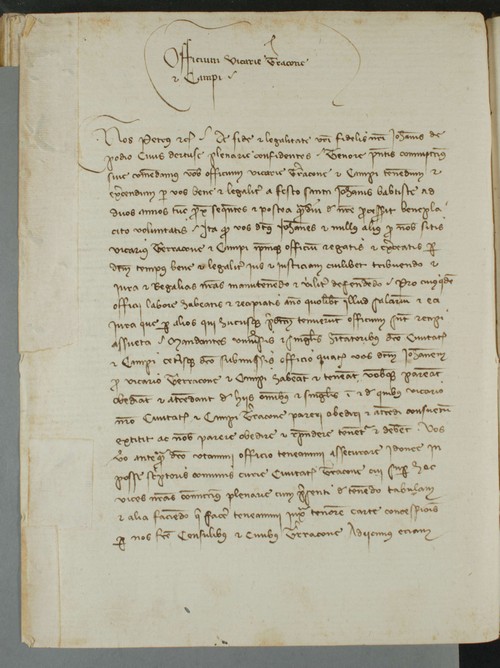 Officium vicarie Terracone
et Campi
Nos Petrus etc. De fide et legalitate vestri fidelis nostri Johannis de
podio Civis dertuse plenarie confidentes. Tenore presentis committimus
sive comendamus vobis officium vicarie Terracone et Campi tenendum et
exercendum per vos bene et legaliter a festo sancti Johannis babtiste ad
duos annos tunc prox sequentes et postea quamdiu de nostro processerit benepla
cito voluntatis. Ita quod vos dictus Johannes et nullus alius pro nobis sitis
vicarius Terracone et Campi ipsumque officium regatis et exerceatis per
dictum tempus bene et legaliter Jus et Justiciam cuilibet tribuendo et
Jura et Regalias nostras manutenendo et viriliter defendendo. Pro cuiusquidem
officii labore habeatis et recipiatis anno quolibet illud salarium et ea
Jura que alios qui hucusque dictum tenuerunt officium sunt recipi
assueta. Mandantes universis et singulis habitatoribus dicte Civitatis
et Campi ceterisque dicto submissis officio quatenus vos dictum Johannem
pro vicario Terracone et Campi habeant et teneant vobisque pareant
obediant et attendant de hiis omnibus et singulis in et de quibus vicario
nostro Civitatis et Campi Terracone pareri obediri et attendi consuetum
extitit ac nobis parere obedire et respondere tenentur et debent. Vos
vero antequam dicto utamini officio teneamini assecurare idonee in
posse scriptoris communis curie Civitatis Terracone cui super hoc
vices nostras comittimus plenarie cum presenti de tenendo tabulam
et alia faciendo que facere teneamini juxta tenorem carte concessionis
per nos facte Consulibus et Civibus Terracone Adiicimus etiam